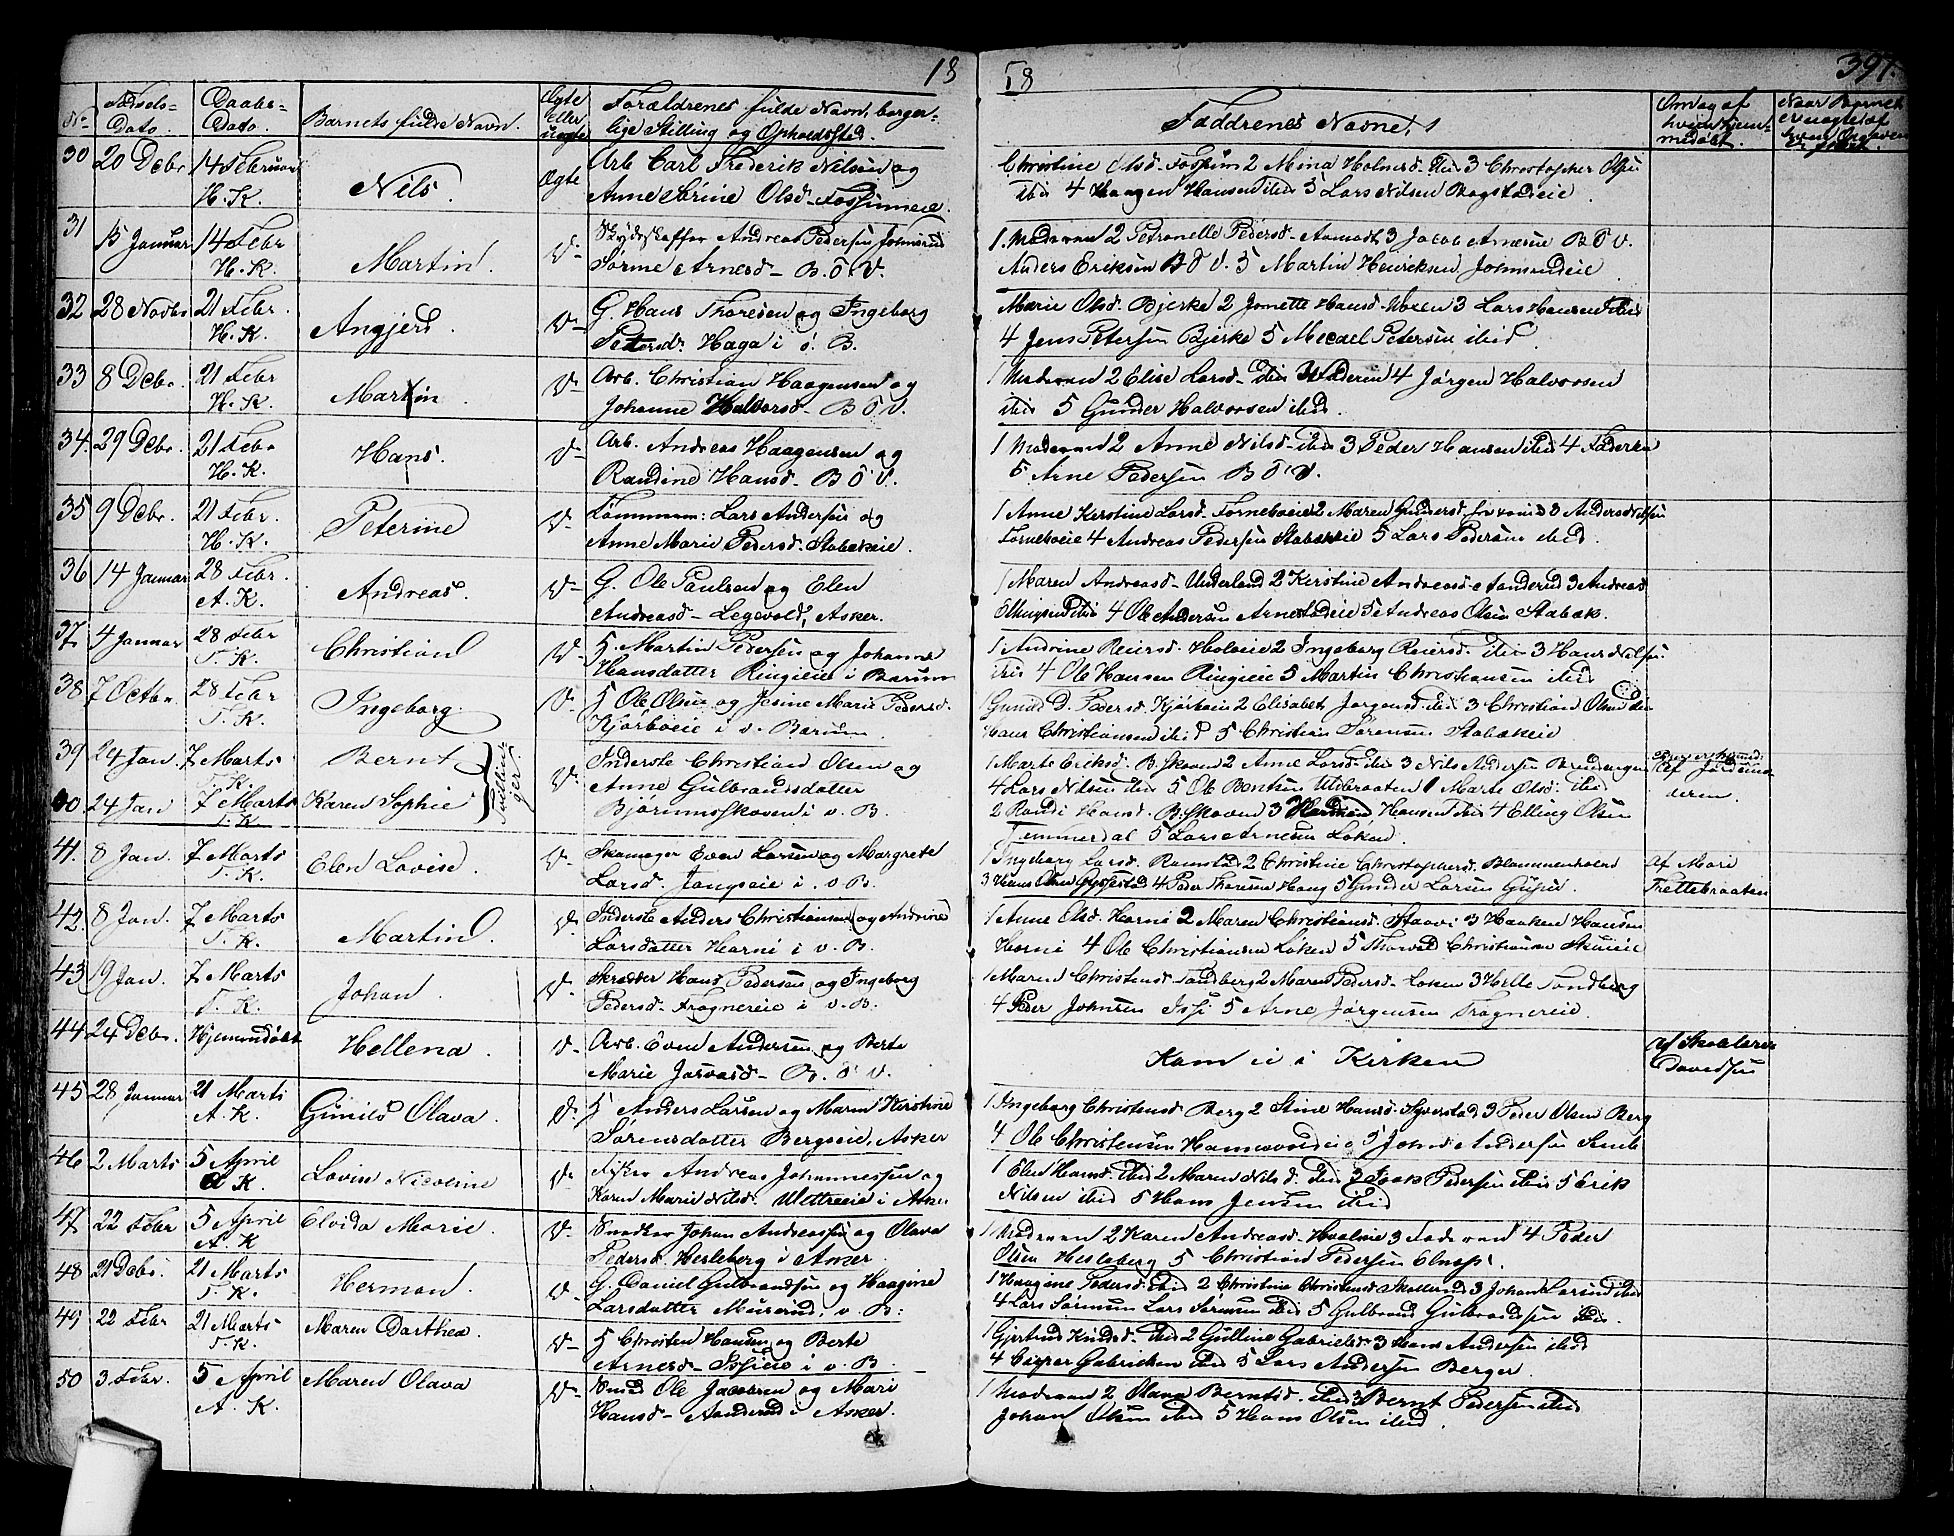 18 58 397.
No Fødsels-Dato. Daabs-Dato. Barnets fulde Navn. Ægte eller uægte Forældrenes fulde Navn, borgerlige Stilling og Opholdssted. Faddrenes Navne. Om og af hvem hjemmedøbt.
30 20 Decbr 14 Februar H. K. Nils. Ægte Arb. Carl Frederik Nilsen og
Anne Sørine Olsd. Fossumeie.
Christine Olsd. Fossum 2 Mina Holmsd. ibid 3 Christopher Olsen
ibid 4 Haagen Hansen ibid 5 Lars Nilsen Bogstadeie.
31 15 Januar 14 Febr H. K. Martin. Skydsskaffer Andreas Pedersen Johnsrud
Sørine Arnesd. B. Ø. V.
1. Moderen 2 Petronelle Pedersd. Aamodt 3 Jacob Arnesen B Ø V.
Anders Eriksen B Ø V. 5 Martin Henriksen Johnsrudeie
32 28 Novbr 21 Febr. H. K. Angjerd. G. Hans Thoresen og Ingeborg
Petersd. Haga i ø. B.
Marie Olsd. Bjerke 2 Jonette Hansd. Voxen 3 Lars Hansen ibid
4 Jens Petersen Bjerke 5 Micael Petersen ibid.
33 8 Decbr. 21 Febr H. K. Martin. Arb. Christian Haagensen og
Johanne Halvorsd. B Ø V.
1 Moderen 2 Elise Larsd. ibid 3 Faderen 4 Jørgen Halvorsen
ibid 5 Gunder Halvorsen ibid.
34. 29 Decbr. 21 Febr H. K. Hans. Arb. Andreas Haagensen og
Randine Hansd. B Ø V.
1 Moderen 2 Anne Nilsd. ibid 3 Peder Hansen ibid 4 Faderen
5 Arne Pedersen B Ø V.
35 9 Decbr. 21 Febr. H. K. Peterine Tømmerm: Lars Andersen og
Anne Marie Pedersd. Stabækeie.
1 Anne Kerstine Larsd. Torneboeie 2 Maren Gundersd. 3 Anders Nilsen
Torneboeie 4 Andreas Pedersen Stabækeie 5 Lars Pedersen ibid.
36 14 Januar 28 Febr. A. K. Andreas. G. Ole Paulsen og Elen
Andreasd. Legevold, Asker.
1 Maren Andreasd. Underland 2 Kirstine Andreasd. Sanderud 3 Andreas
ibid 4 Ole Andersen Arnestadeie 5 Andreas Olsen Stabæk.
37 4 Januar 28 Febr T. K. Christian H. Martin Pedersen og Johanne
Hansdatter Ringieie i Bærum
1 Andrine Reiersd. Holeie 2 Ingeborg Reiersd. ibid 3 Hans Nilsen
ibid 4 Ole Hansen Ringieie 5 Martin Christiansen ibid
38 7 Octbr 28 Febr T. K. Ingeborg. H Ole Olsen og Josine Marie Pedersd.
Kjørboeie i v. Bærum.
Gunild D. Pedersd. Kjørboeie 2 Elisabet Jørgensd. ibid 3 Christian Olsen ibid
Hans Christiansen ibid 5 Christian Sørensen Stabækeie
39 24 Jan 7 Marts T. K. Bernt Tvillinger. Inderste Christian Olsen og
Anne Gulbrandsdatter
1 Marte Eriksd. B. Skoven 2 Anne Larsd. ibid 3 Nils Andersen Brendengen Af Jordemoderen.
4 Lars Nilsen ibid 5 Ole Bentsen Utibraaten 1 Marte Olsd. ibid
40 24 Jan 7 Marts T. K. Karen Sophie Bjørumsskoven i v. B.
2 Randi Hansd. B. Skoven 3 Herman Hansen ibid 4 Elling Olsen
Temmerdal 5 Lars Arnesen Løken
41. 8 Jan. 7 Marts T. K. Elen Lovise. Skomager Even Larsen og Margrete
Larsd. Jongseie i v. B.
1 Ingeborg Larsd. Ramstad 2 Christine Christophersd. Blommenholm Af Mari Trettebraaten
3 Hans Olsen Gyssestad 4 Peder Thoresen Haug 5 Gunder Larsen
42. 8 Jan. 7 Marts T. K. Martin. Inderste Anders Christiansen og Andrine
Larsdatter Horni i v. B.
1 Anne Olsd. Horni 2 Maren Christiansd. Staavi 3 Haaken Hansen
Horni 4 Ole Christiansen Løken 5 Thorvald Christiansen
43 19 Jan. 7 Marts T. K. Johan. Skredder Hans Pedersen og Ingeborg
Pedersd. Frognereie i v. B.
1 Maren Christensd. Tandberg 2 Maren Pedersd. Løken 3 Helle Tandberg
4 Peder Johnsen Issi 5 Arne Jørgensen Frognereie.
44 24 Decbr. Hjemmedøbt Hellena. Arb. Even Andersen og Berte
Marie Jørasd. B. Ø V.
Kom ei i Kirken Af Skolelærer Davidsen
45 28 Januar 21 Marts A. K. Gunild Olava. H Anders Larsen og Maren Kirstine
Sørensdatter Bergseie, Asker
1 Ingeborg Christensd. Berg 2 Stine Hansd. Syverstad 3 Peder Olsen Berg
4 Ole Christensen 5 Johns Andersen
46 2 Marts 5 April A K. Lovise Nicoline Fisker Andreas Johannessen og
Karen Marie Nilsd. Vettreeie i Asker
1 Elen Hansd. ibid 2 Maren Nilsd. ibid 3 Isak Pedersen ibid 5 Erik
Nilsen ibid 5 Hans Jensen ibid
47 22 Febr 5 April A. K Elvida Marie. Snedker Johan Andreassen og Olava
Pedersd. Hesleberg i Asker
1 Moderen 2 Karen Andreasd. Hvalseie 3 Faderen 4 Peder
Olsen Hesleberg 5 Christian Pedersen
48 21 Decbr. 21 Marts T. K. Herman. G. Daniel Gulbrandsen og Haagine
Larsdatter v. B.
1 Haagine Pedersd. ibid 2 Christine Christensd. Skollerud 3 Johan Larsen ibid
4 Lars Sørensen Lars Sørensen ibid 5 Gulbrand Gulbrandsen ibid.
49 22 Febr 21 Marts T. K. Maren Dorthea. H Christen Hansen og Berte
Arnesd. Issieie i v. B
1 Gjertrud Knudsd. ibid 2 Gulline Gabrielsd. 3 Hans Andersen ibid
4 Casper Gabrielsen ibid 5 Lars Andersen Berger
50 3 Febr. 5 April A. K. Maren Olava Smed Ole Jacobsen og Mari
Hansd. Sanderud i Asker.
1 Moderen 2 Olava Berntsd. ibid 3 Bernt Pedersen ibid
Johan Olsen ibid 5 Hans Olsen ibid.